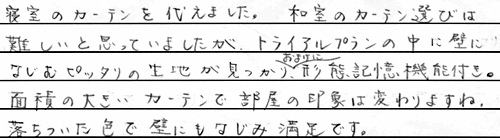 寝室のカーテンを代えました。 和室のカーテン選びは
難しいと思っていましたが、トライアルプランの中に壁に
なじむピッタリの生地が見つかり、おまけに形態記憶機能付き。
面積の大きいカーテンで部屋の印象は変わりますね。
落ちついた色で壁にもなじみ満足です。